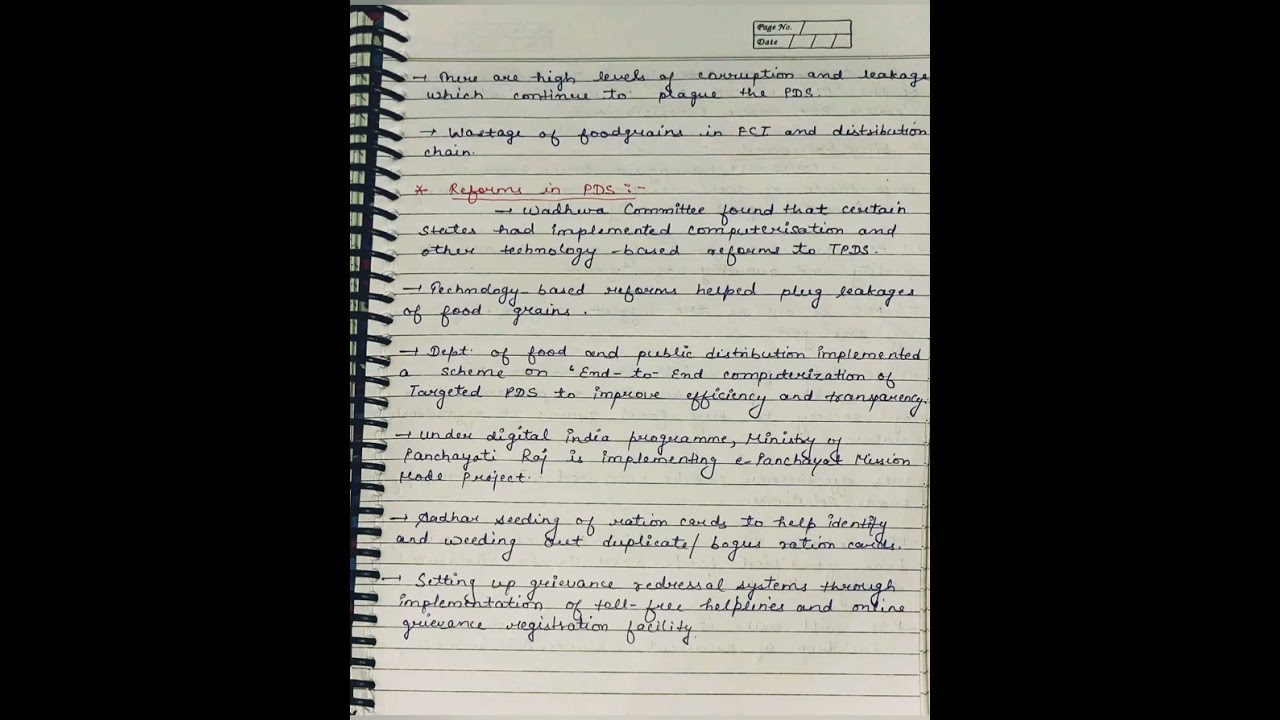 Page No.
Date
→ There are high levels of corruption and leakage
which continue to plague the PDS.
→ Wastage of foodgrains in FCI and distribution
chain.
* Reforms in PDS :-
→ Wadhwa Committee found that certain
states had implemented computerisation and
other technology-based reforms to TPDS.
→ Technology-based reforms helped plug leakages
of food grains.
→ Dept. of food and public distribution implemented
a scheme on 'End-to-End computerization of
Targeted PDS to improve efficiency and transparency.
→ Under digital india programme, Ministry of
Panchayati Raj is implementing e-Panchayat Mission
Mode Project.
→ Aadhar seeding of ration cards to help identify
and weeding out duplicate/ bogus ration cards.
→ Setting up grievance redressal systems through
implementation of toll-free helplines and online
grievance registration facility.